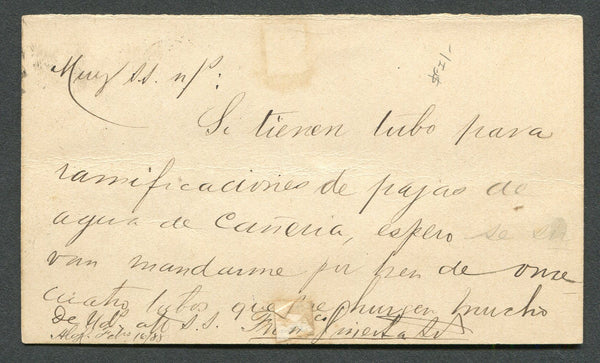 Muy SS. n/s:
Si tienen tubo para
ramificaciones de pajas de
agua de cañeria, espero se sir
van mandarme por tren de once
cuatro tubos que me hurgen mucho
De Uds. att. S. S.